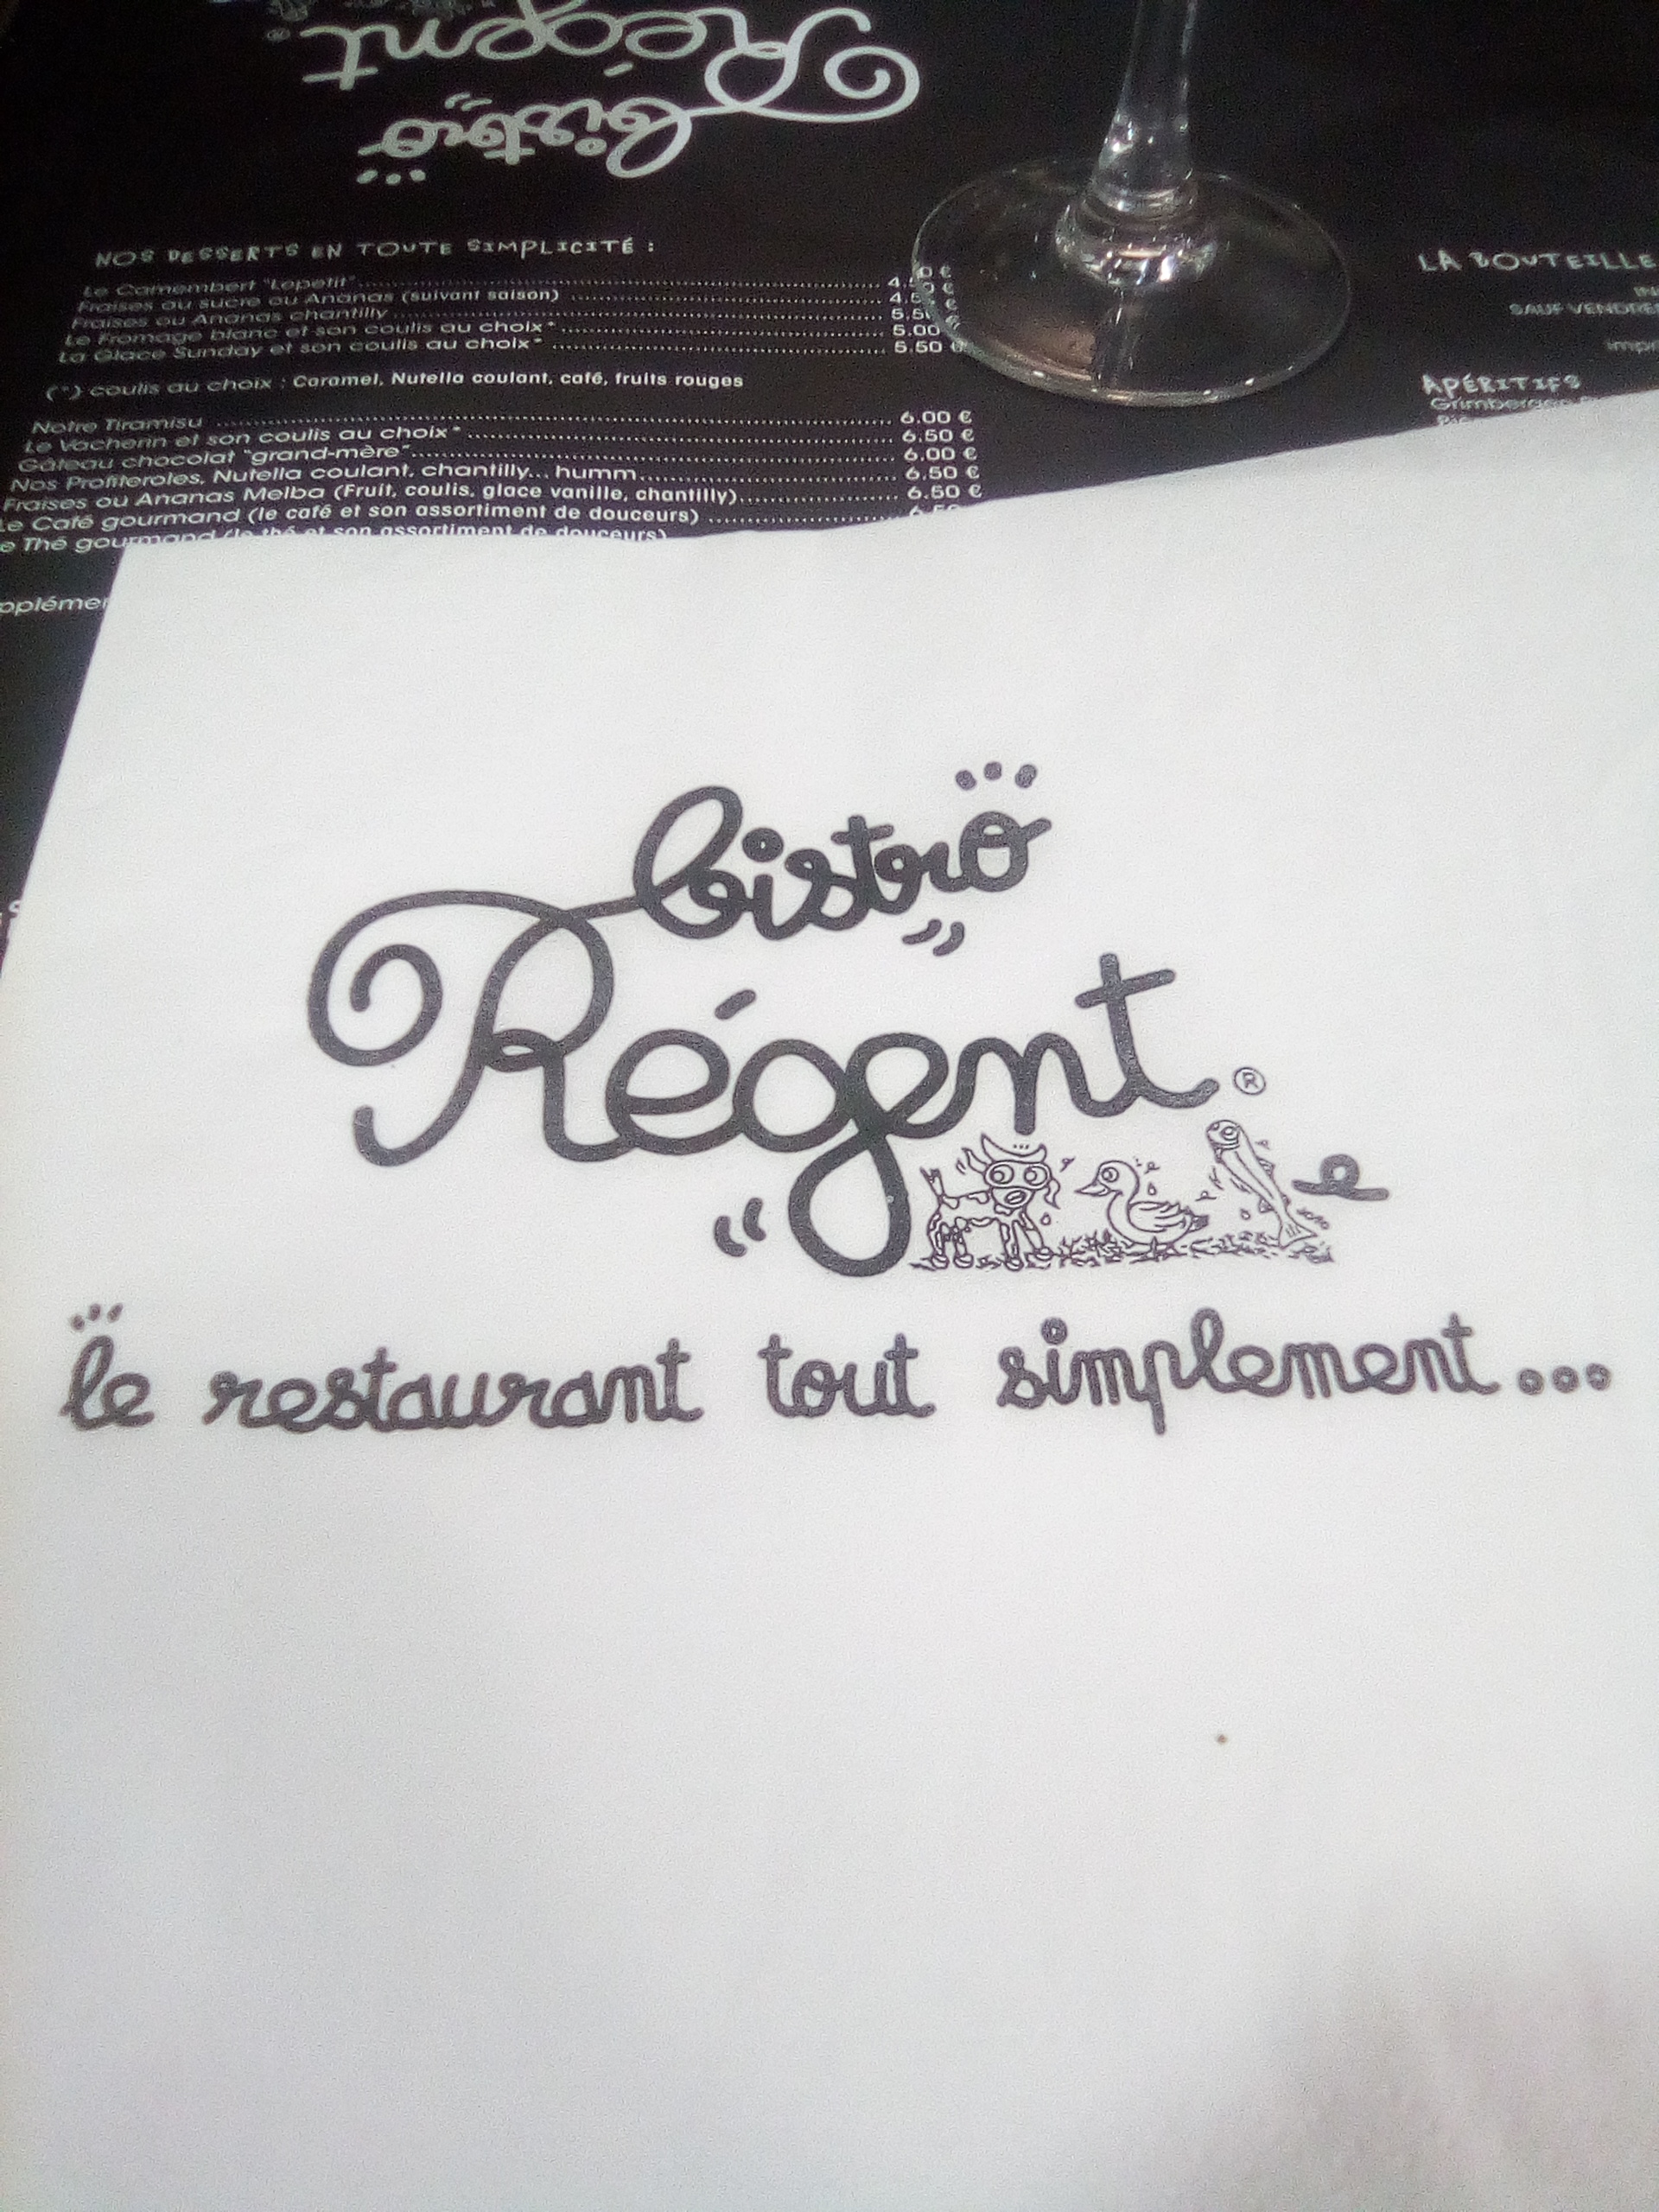 bistro
Régent
®
NOS DESSERTS EN TOUTE SIMPLICITÉ :
Le Camembert "Lepetit"
Fraises au sucre ou Ananas (suivant saison)
Fraises ou Ananas chantilly
Le Fromage blanc et son coulis au choix* 5.00
La Glace Sunday et son coulis au choix* 5.50 €
(*) coulis au choix : Caramel, Nutella coulant, café, fruits rouges
Notre Tiramisu 6.00 €
Le Vacherin et son coulis au choix* 6.50 €
Gâteau chocolat "grand-mère" 6.00 €
Nos Profiteroles, Nutella coulant, chantilly... humm 6.50 €
Fraises ou Ananas Melba (Fruit, coulis, glace vanille, chantilly) 6.50 €
Le Café gourmand (le café et son assortiment de douceurs)
e Thé gourmand (le thé et son assortiment de douceurs)
LA BOUTEILLE
SAUF VENDRE
APÉRITIFS
bistro
Régent®
le restaurant tout simplement...